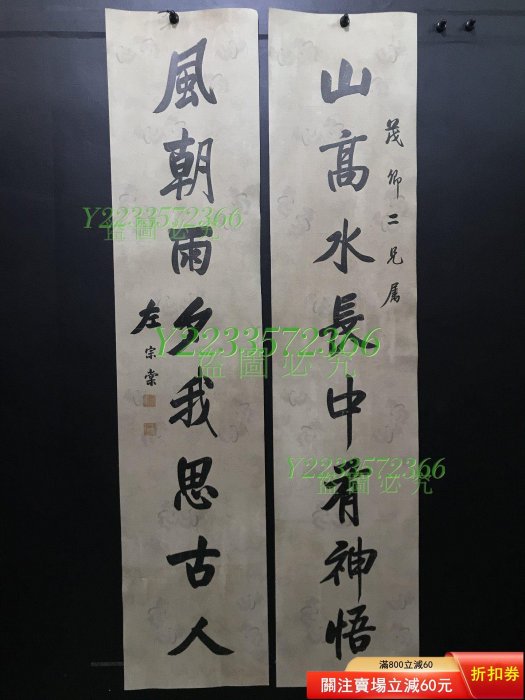 山高水長中有神悟
茂卿二兄属
風朝雨夕我思古人
左宗棠
Y2233572366
盜圖必究
Y2233572366
盜圖必究
Y2233572366
盜圖必究
滿800立減60
關注賣場立減60元
折扣券